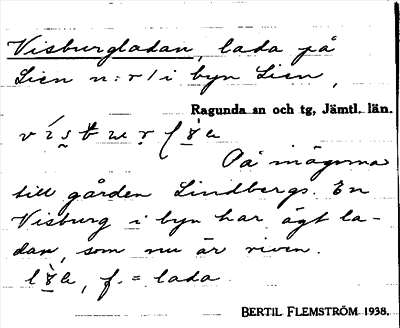 Visburgladan, lada på
Lien n:r 1 i byn Lien,
Ragunda sn och tg, Jämtl. län.
På mågorna
till gården Lindbergs. En
Visburg i byn har ägt la-
dan, som nu är riven.
f. = lada
BERTIL FLEMSTRÖM 1938.